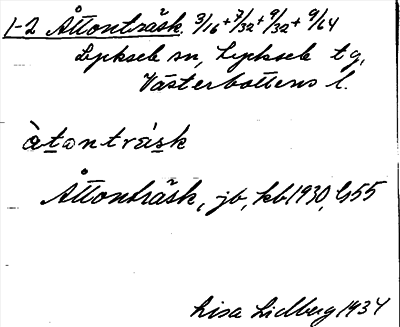 1-2 Åttonträsk 3/16 + 7/32 + 9/32 + 9/64
Lycksele sn, Lycksele tg,
Västerbottens l.
àtontràsk
Åttonträsk, jb, kb 1930, G55
Lisa Lidberg 1934